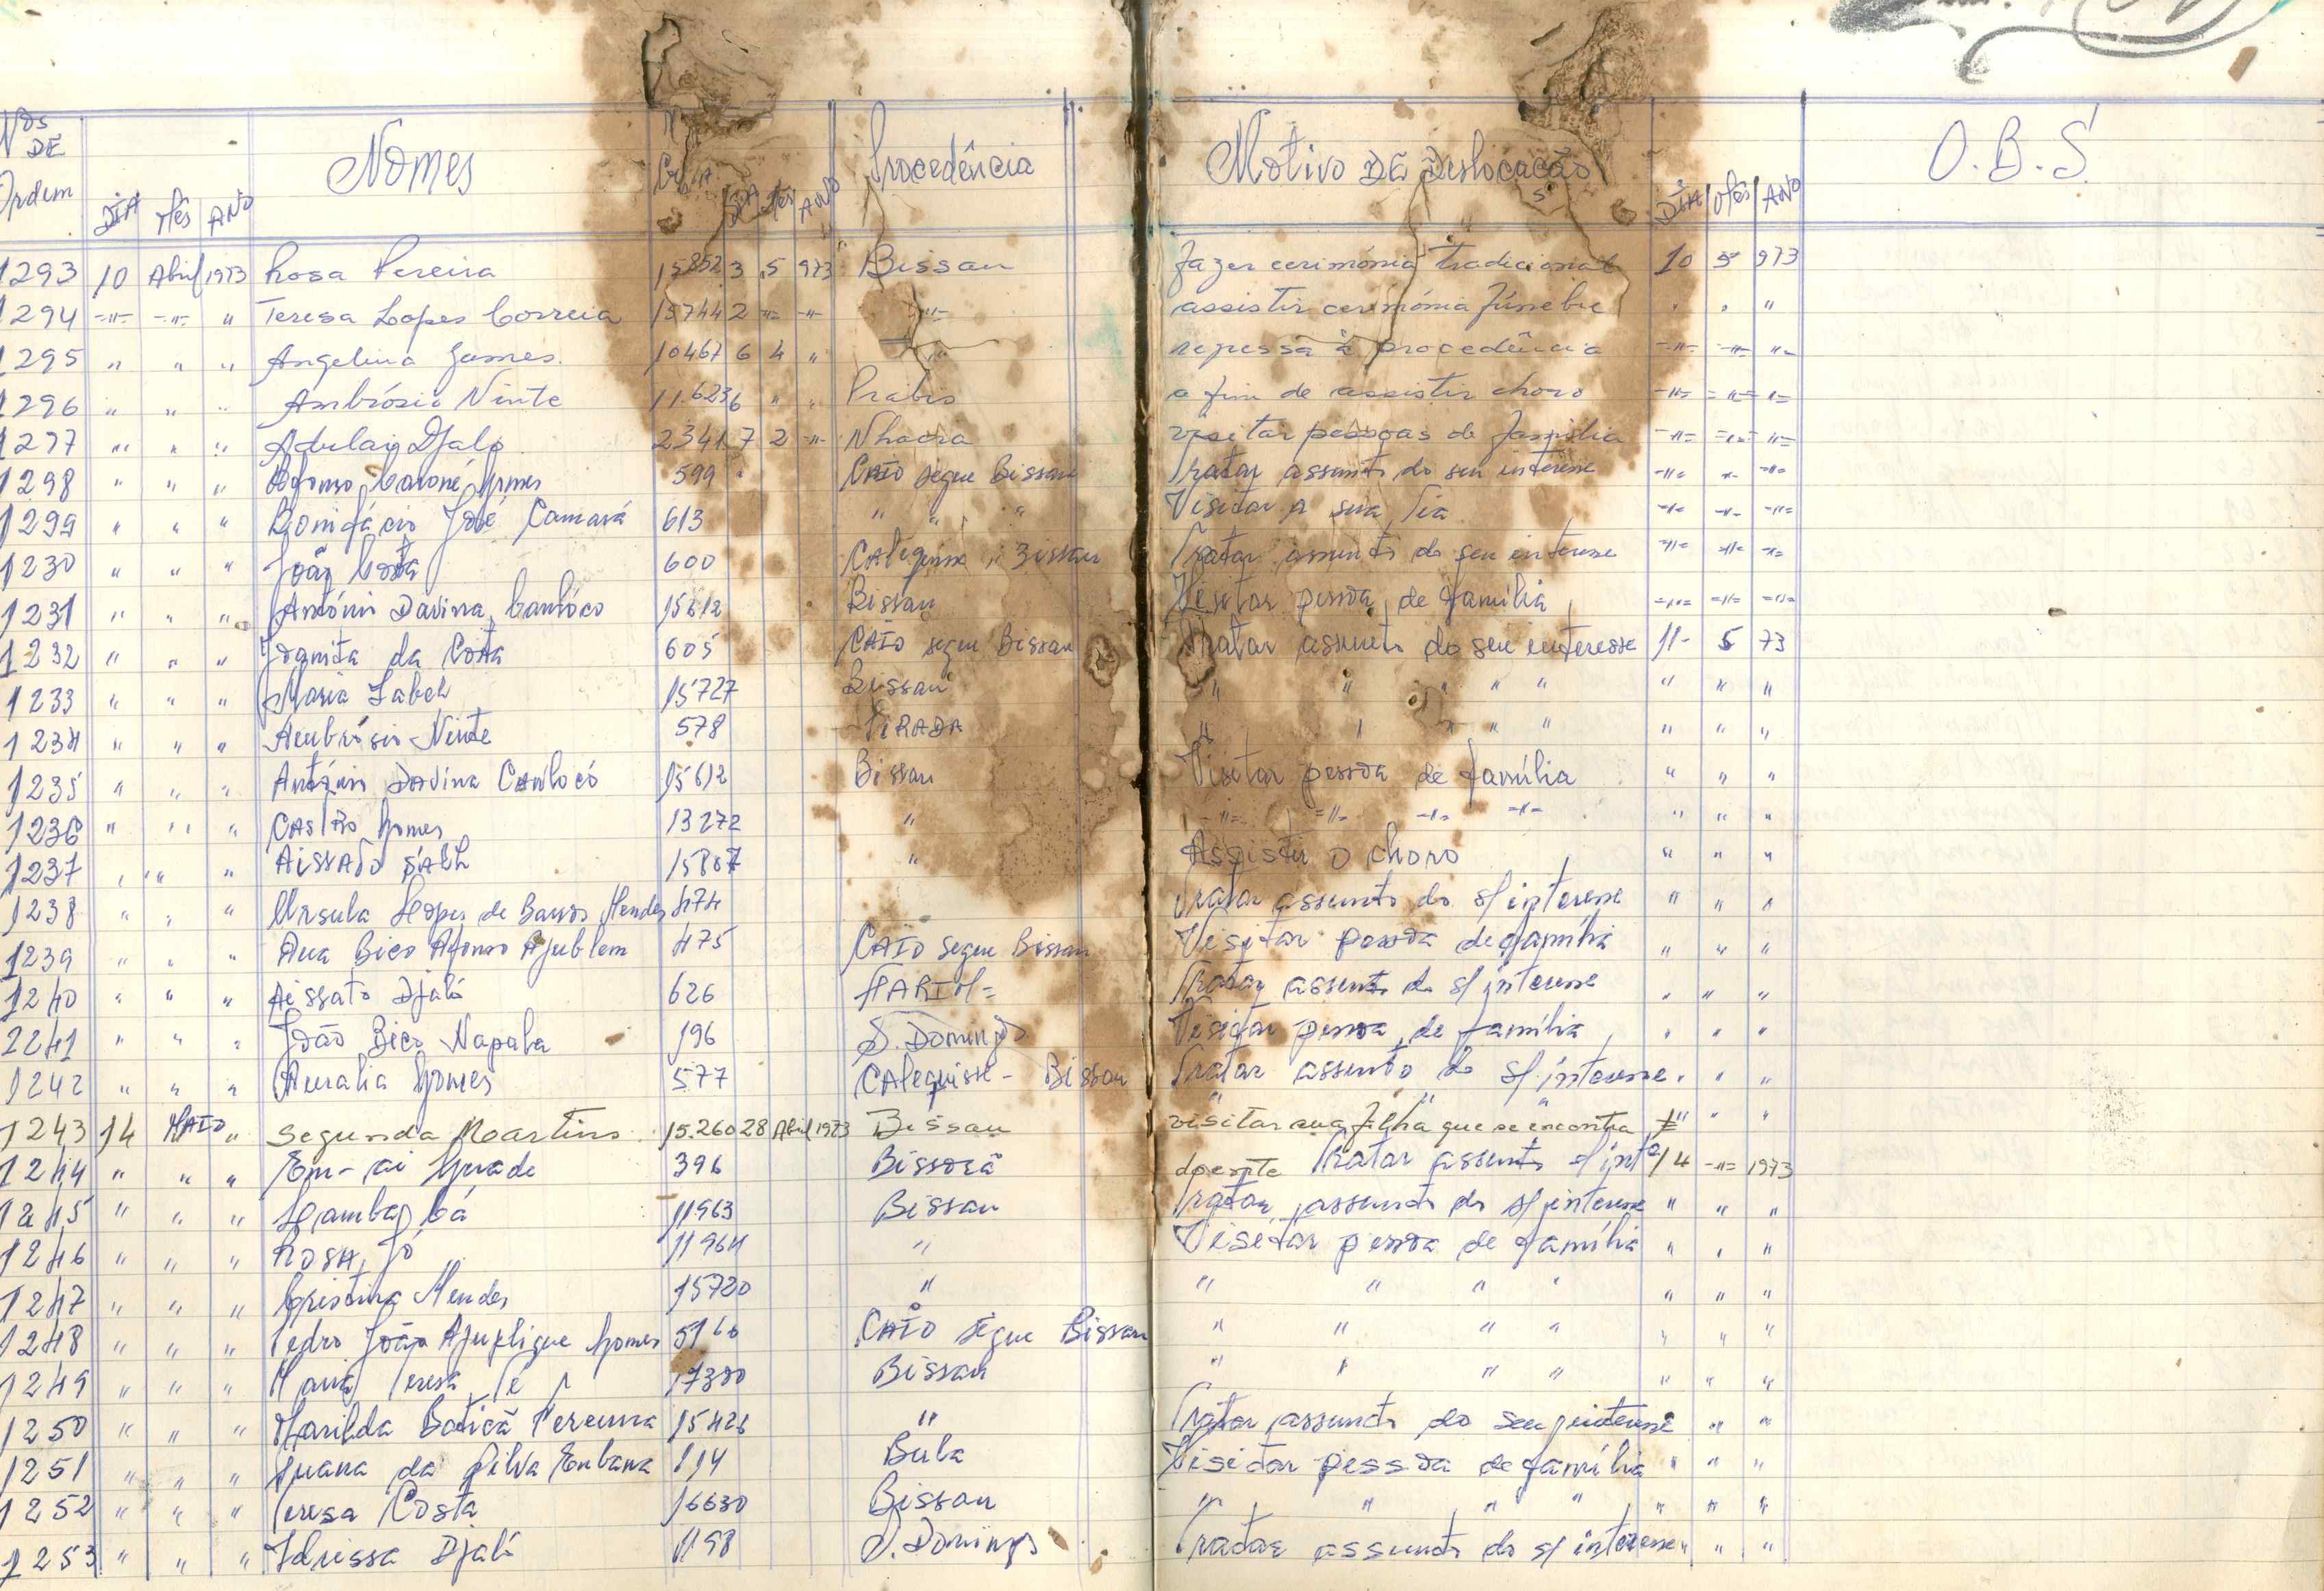 Nos DE Ordem DIA Mês ANO Nomes Guia DIA Mês ANO Procedência Motivo DE Deslocação DIA Mês ANO O.B.S
1293 10 Abril 1973 Rosa Pereira 15852 3 5 973 Bissau fazer cerimónia tradicional 10 5 973
1294 -"- -"- " Teresa Lopes Correia 15744 2 -"- -"- -"- assistir cerimónia fúnebre " " "
1295 " " " Angelina Gomes 10467 6 4 " " regressa à procedência -"- -"- "
1296 " " " Ambrósio Ninte 11.623 6 " " Prabis a fim de assistir choro -"- -"- -"-
1297 " " " Adulai Djaló 2341 7 2 -"- Nhacra visitar pessoas de família -"- -"- -"-
1298 " " " Afonso Gomes 599 " CAIO segue Bissau Tratar assunto do seu interesse -"- -"- -"-
1299 " " " Bonifácio José Camará 613 " " " Visitar a sua Tia -"- -"- -"-
1230 " " " João Costa 600 Calequisse " Bissau Tratar assunto do seu interesse -"- -"- -"-
1231 " " " António Davina Canhóco 15612 Bissau Visitar pessoa de família -"- -"- -"-
1232 " " " Joanita da Costa 605 CAIO segue Bissau Tratar assunto do seu interesse 11- 5 73
1233 " " " Maria Isabel 15727 Bissau " " " " " " " "
1234 " " " Ambrósio Ninte 578 PIRADA " " " " " " " "
1235 " " " António Davina Canhocó 15612 Bissau Visitar pessoa de família " " "
1236 " " " CASTRO Gomes 13272 " -"- -"- -"- -"- " " "
1237 " " " Aissato 15807 " Assistir o choro " " "
1238 " " " Ursula Lopes de Barros Mendes 474 Tratar assunto do s/ interesse " " "
1239 " " " Ana Bico Afonso 475 CAIO segue Bissau Visitar pessoa de família " " "
1240 " " " Aissato Djaló 626 Tratar assunto do s/ interesse " " "
2241 " " " João Bico Napala 196 S. Domingos Visitar pessoa de família " " "
1242 " " " Auralia Gomes 577 Calequisse - Bissau Tratar assunto do s/ interesse " " "
1243 14 MAIO " Segunda Martins 15.260 28 Abril 1973 Bissau visitar sua filha que se encontra " " "
1244 " " " 396 Bissorã doente Tratar assunto s/ intº 14 -"- 1973
1245 " " " 11963 Bissau Tratar assunto do s/ interesse " " "
1246 " " " ROSA Jó 11964 " Visitar pessoa de família " " "
1247 " " " Cristina Mendes 15720 " " " " " " " "
1248 " " " Pedro João Gomes 5160 CAIO segue Bissau " " " " " " "
1249 " " " Maria Teresa 17380 Bissau " " " " " " "
1250 " " " Marilda Boticã 15426 " Tratar assunto do seu interesse " "
1251 " " " da Silva 114 Bula Visitar pessoa de família " " "
1252 " " " Teresa Costa 16630 Bissau " " " " " " "
1253 " " " Idrissa Djaló 1198 S. Domingos Tratar assunto do s/ interesse " " "